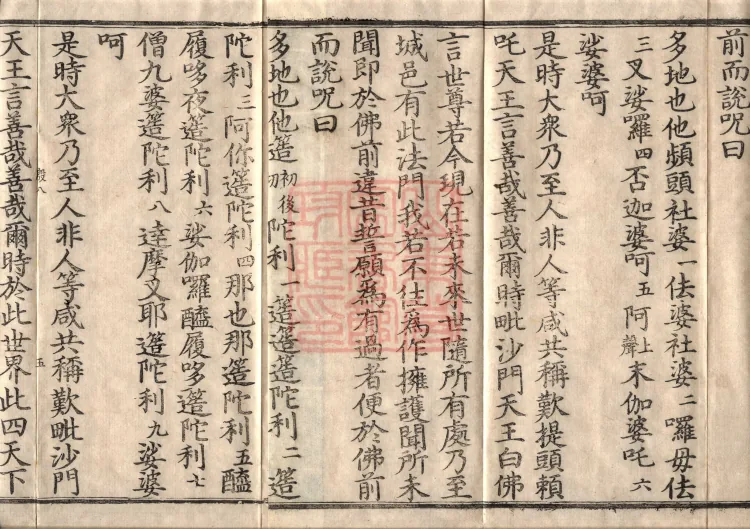 前而說呪曰
多地也他頻頭社婆一佉婆社婆二囉毋佉
三叉娑囉四否迦婆呵五阿上聲末伽婆吒六
娑婆呵
是時大衆乃至人非人等咸共稱歎提頭賴
吒天王言善哉善哉爾時毗沙門天王白佛
言世尊若今現在若未來世隨所有處乃至
城邑有此法門我若不住爲作擁護聞所未
聞即於佛前違昔誓願爲有過者便於佛前
而說呪曰
多地也他簉初後陀利一簉簉陀利二簉
陀利三阿你簉陀利四那也那簉陀利五醯
履哆夜簉陀利六娑伽囉醯履哆簉陀利七
僧九婆簉陀利八達摩叉耶簉陀利九娑婆
呵
是時大衆乃至人非人等咸共稱歎毗沙門
天王言善哉善哉爾時於此世界此四天下
殷八
五